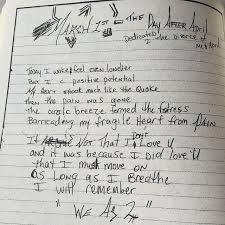 March 1st = the Day After April
Dedicated 2 the Divorce of Me & April
Today I woke & feel even lonelier
But I C positive potential
My heart shook much like the Quake
then the pain was gone
the arctic breeze formed the fortress
Barricading my fragile Heart from PAIN
It Not that I Don't Love U
and it was because I did love U
that I must move on
As Long as I Breathe
I will remember
"WE AS 1"